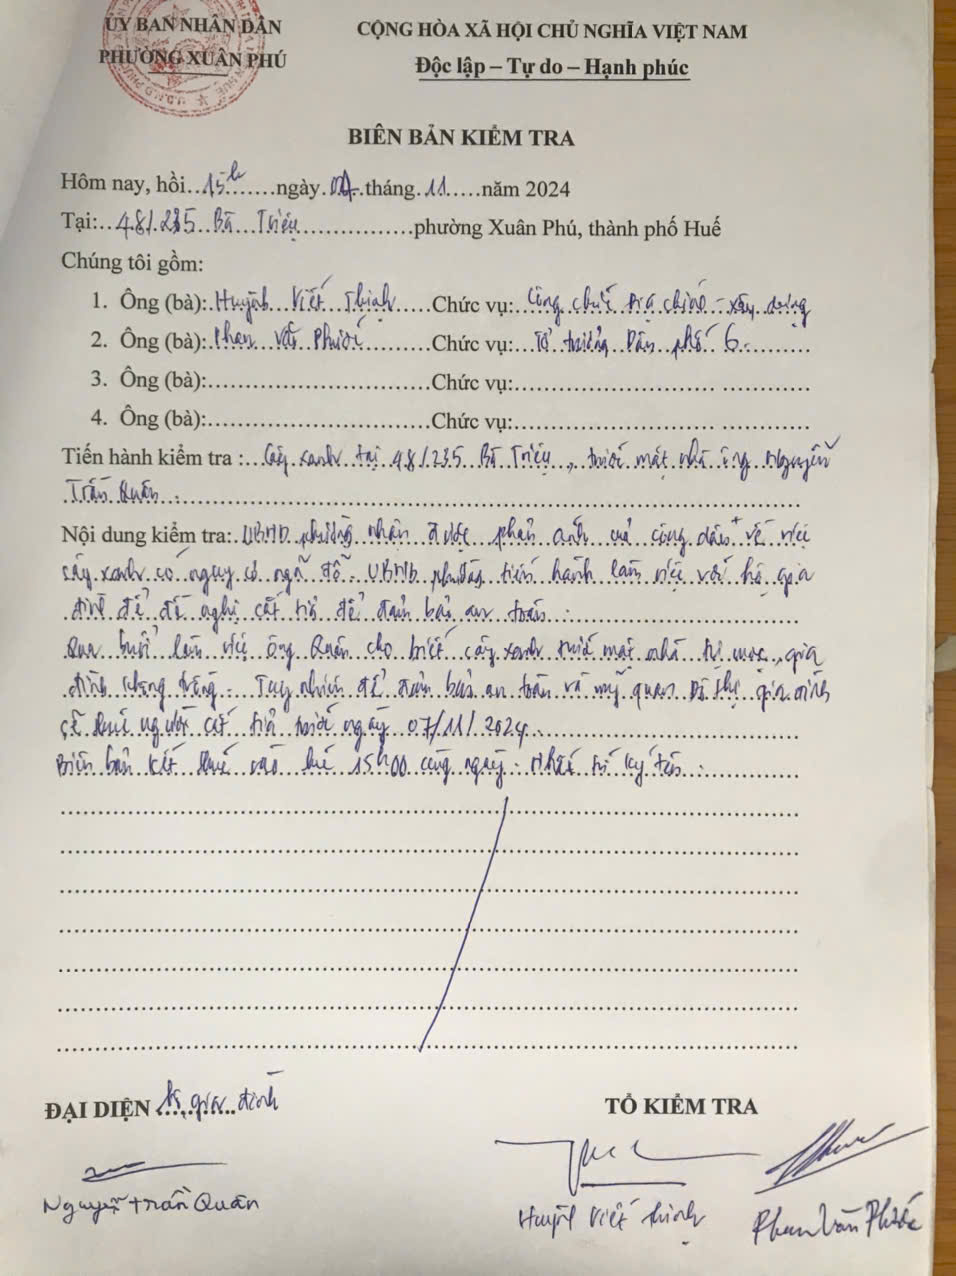 ỦY BAN NHÂN DÂN
PHƯỜNG XUÂN PHÚ
CỘNG HÒA XÃ HỘI CHỦ NGHĨA VIỆT NAM
Độc lập – Tự do – Hạnh phúc
BIÊN BẢN KIỂM TRA
Hôm nay, hồi 15h ngày 04 tháng 11 năm 2024
Tại: 48/235 Bà Triệu phường Xuân Phú, thành phố Huế
Chúng tôi gồm:
1. Ông (bà): Huỳnh Viết Thịnh Chức vụ: Công chức địa chính - xây dựng
2. Ông (bà): Phan Văn Phước Chức vụ: Tổ trưởng Dân phố 6
3. Ông (bà): Chức vụ:
4. Ông (bà): Chức vụ:
Tiến hành kiểm tra : Cây xanh tại 48/235 Bà Triệu, trước mặt nhà ông Nguyễn
Trần Quân.
Nội dung kiểm tra: UBND phường nhận được phản ánh của công dân về việc
cây xanh có nguy cơ ngã đổ. UBND phường tiến hành làm việc với hộ gia
đình để đề nghị cắt tỉa để đảm bảo an toàn.
Qua buổi làm việc ông Quân cho biết cây xanh trước mặt nhà tự mọc, gia
đình không trồng. Tuy nhiên để đảm bảo an toàn và mỹ quan Đô thị gia đình
sẽ thuê người cắt tỉa trước ngày 07/11/2024.
Biên bản kết thúc vào lúc 15h00 cùng ngày. Nhất trí ký tên.
ĐẠI DIỆN Hộ gia đình
TỔ KIỂM TRA
Nguyễn Trần Quân
Huỳnh Viết Thịnh
Phan Văn Phước